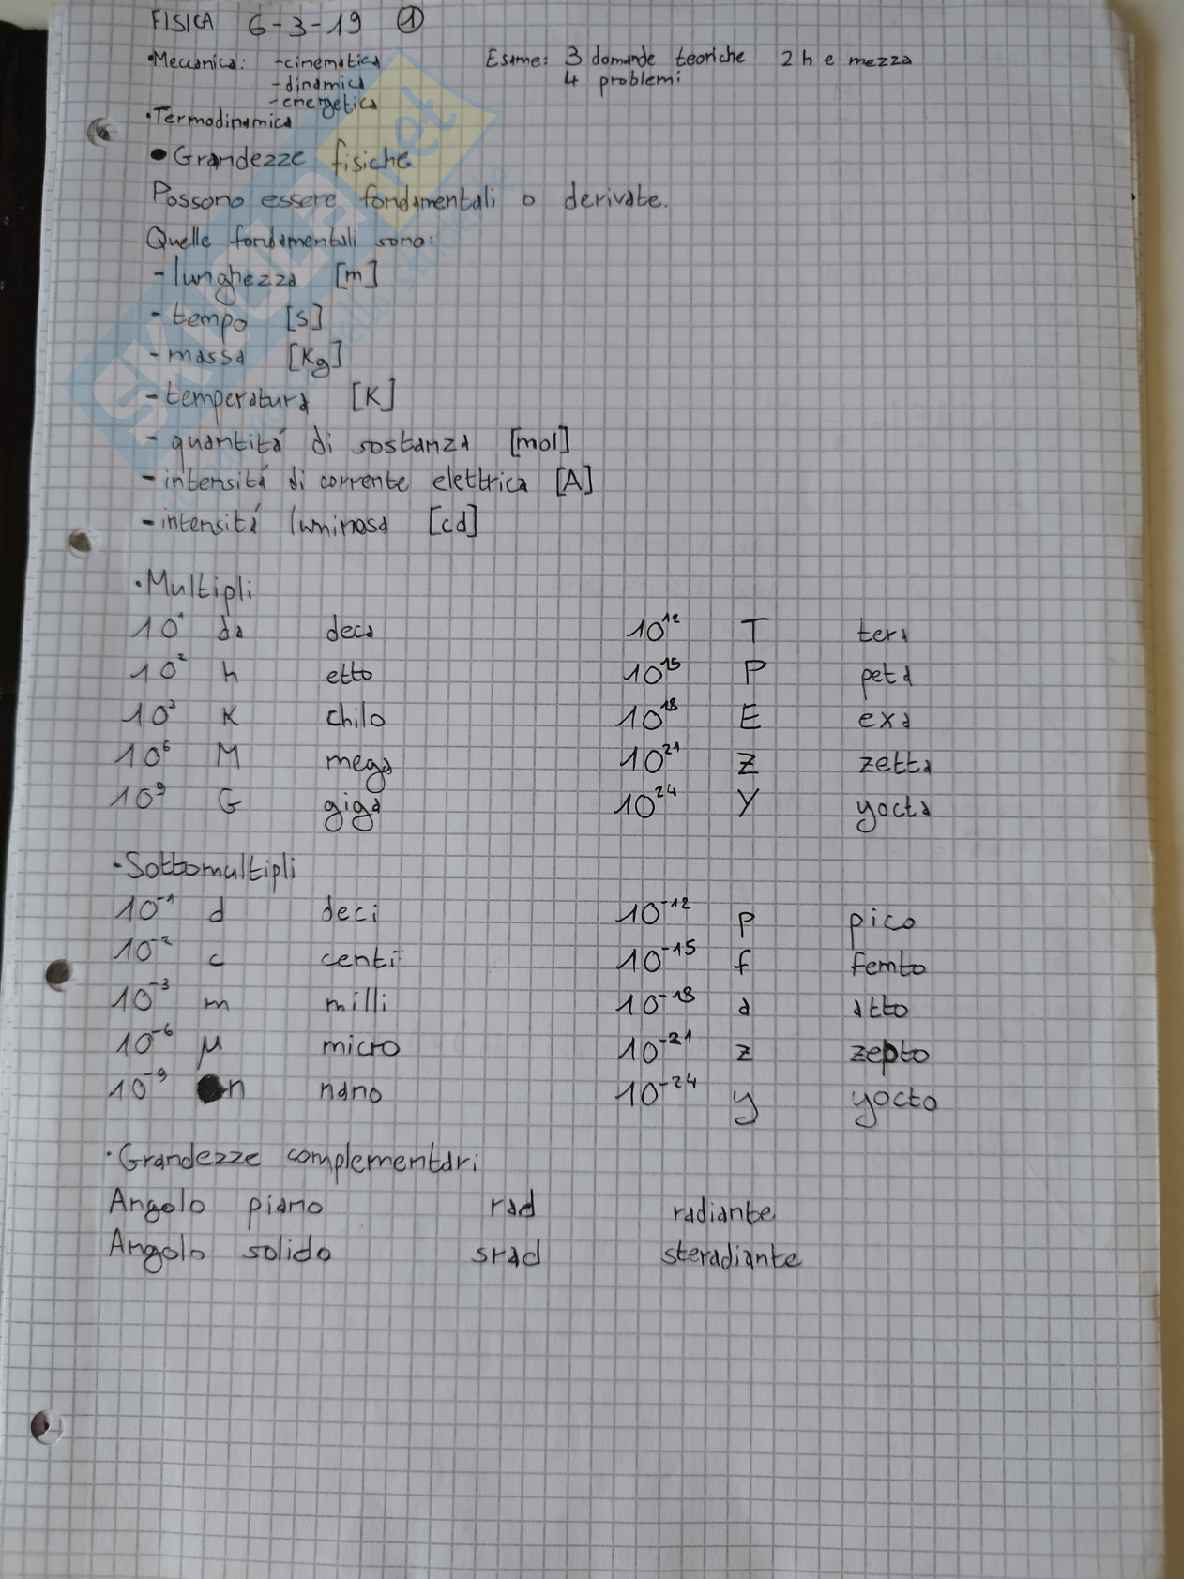 FISICA 6-3-19 ①
•Meccanica: -cinematica Esame: 3 domande teoriche 2 h e mezza
-dinamica 4 problemi
-energetica
•Termodinamica
•Grandezze fisiche
Possono essere fondamentali o derivate.
Quelle fondamentali sono:
-lunghezza [m]
-tempo [s]
-massa [Kg]
-temperatura [K]
-quantitá di sostanza [mol]
-intensitá di corrente elettrica [A]
-intensitá luminosa [cd]
•Multipli
10¹ da deca 10¹² T tera
10² h etto 10¹⁵ P peta
10³ K chilo 10¹⁸ E exa
10⁶ M mega 10²¹ Z zetta
10⁹ G giga 10²⁴ Y yocta
•Sottomultipli
10⁻¹ d deci 10⁻¹² p pico
10⁻² c centi 10⁻¹⁵ f femto
10⁻³ m milli 10⁻¹⁸ a atto
10⁻⁶ μ micro 10⁻²¹ z zepto
10⁻⁹ n nano 10⁻²⁴ y yocto
•Grandezze complementari
Angolo piano rad radiante
Angolo solido srad steradiante